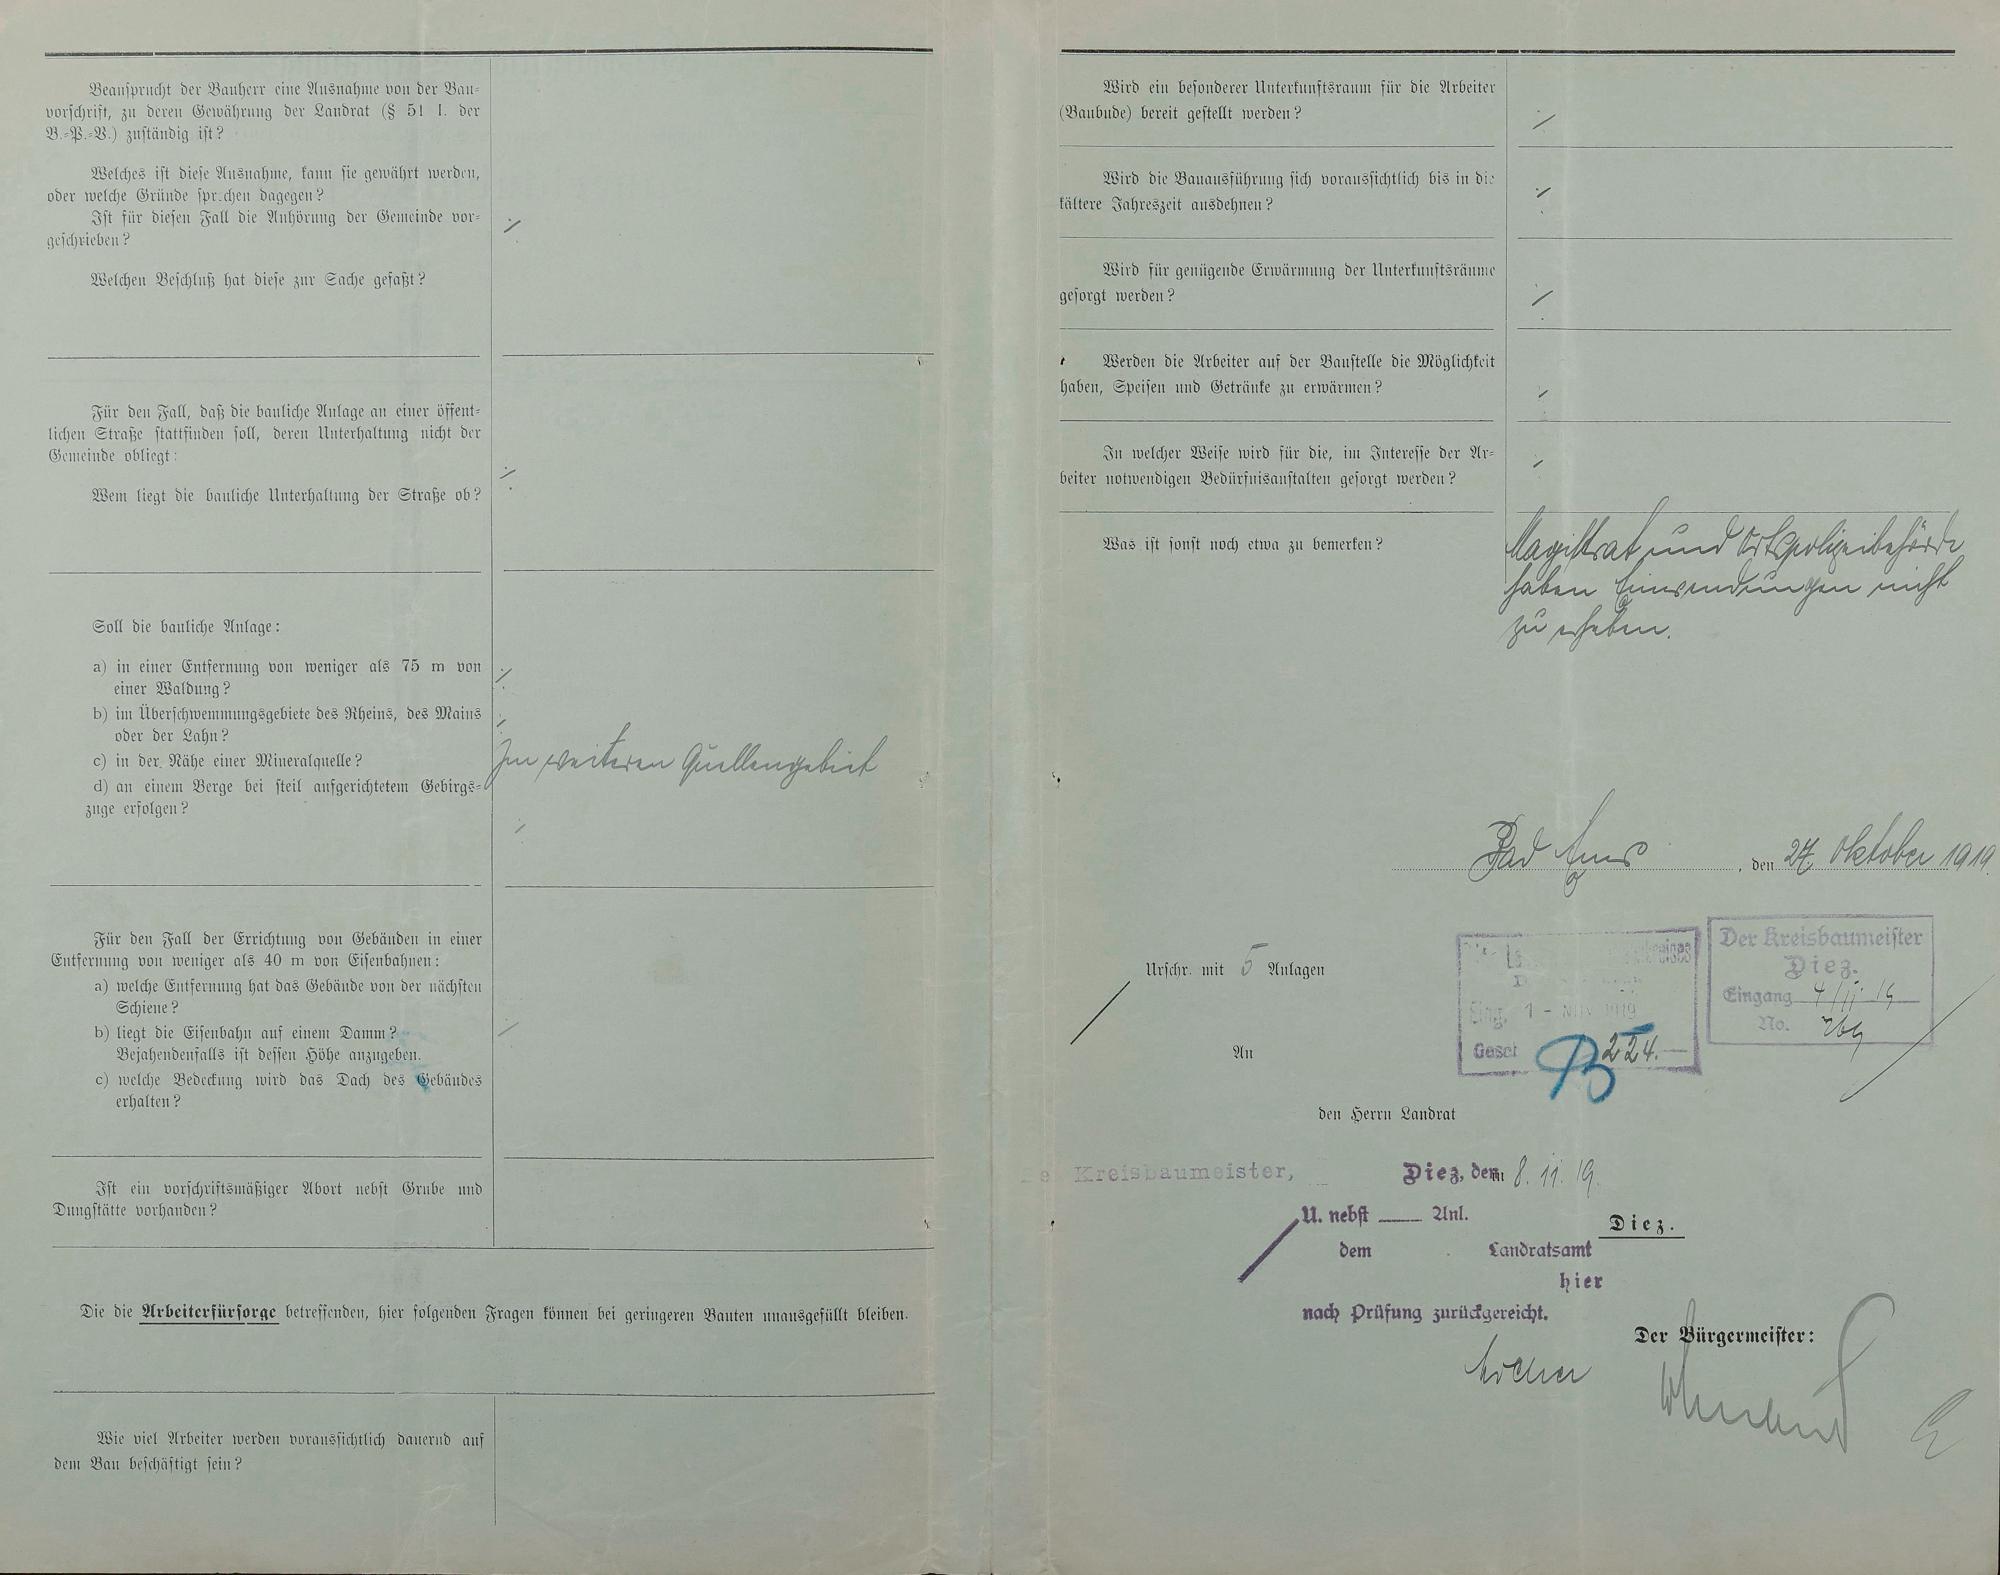 Beansprucht der Bauherr eine Ausnahme von der Bau-
vorschrift, zu deren Gewährung der Landrat (§ 51 I. der
B.-P.-V.) zuständig ist?
Welches ist diese Ausnahme, kann sie gewährt werden,
oder welche Gründe sprechen dagegen?
Ist für diesen Fall die Anhörung der Gemeinde vor-
geschrieben?
Welchen Beschluß hat diese zur Sache gefaßt?
Für den Fall, daß die bauliche Anlage an einer öffent-
lichen Straße stattfinden soll, deren Unterhaltung nicht der
Gemeinde obliegt:
Wem liegt die bauliche Unterhaltung der Straße ob?
Soll die bauliche Anlage:
a) in einer Entfernung von weniger als 75 m von
einer Waldung?
b) im Überschwemmungsgebiete des Rheins, des Mains
oder der Lahn?
c) in der Nähe einer Mineralquelle?
Im weiteren Quellengebiet
d) an einem Berge bei steil aufgerichtetem Gebirgs-
zuge erfolgen?
Für den Fall der Errichtung von Gebäuden in einer
Entfernung von weniger als 40 m von Eisenbahnen:
a) welche Entfernung hat das Gebäude von der nächsten
Schiene?
b) liegt die Eisenbahn auf einem Damm?
Bejahendenfalls ist dessen Höhe anzugeben.
c) welche Bedeckung wird das Dach des Gebäudes
erhalten?
Ist ein vorschriftsmäßiger Abort nebst Grube und
Dungstätte vorhanden?
Die die Arbeiterfürsorge betreffenden, hier folgenden Fragen können bei geringeren Bauten unausgefüllt bleiben.
Wie viel Arbeiter werden voraussichtlich dauernd auf
dem Bau beschäftigt sein?
Wird ein besonderer Unterkunftsraum für die Arbeiter
(Baubude) bereit gestellt werden?
Wird die Bauausführung sich voraussichtlich bis in die
kältere Jahreszeit ausdehnen?
Wird für genügende Erwärmung der Unterkunftsräume
gesorgt werden?
Werden die Arbeiter auf der Baustelle die Möglichkeit
haben, Speisen und Getränke zu erwärmen?
In welcher Weise wird für die, im Interesse der Ar-
beiter notwendigen Bedürfnisanstalten gesorgt werden?
Was ist sonst noch etwa zu bemerken?
Magistrat und Ortspolizeibehörde
haben Einwendungen nicht
zu erheben.
Bad Ems, den 27. Oktober 1919.
Urschr. mit 5 Anlagen
An
den Herrn Landrat
Eing. 1 - NOV. 1919
B 224.
Der Kreisbaumeister
Diez.
Eingang 4/11 19
No.
Kreisbaumeister,
Diez, den 8. 11. 19.
U. nebst Anl.
Diez.
dem Landratsamt
hier
nach Prüfung zurückgereicht.
Der Bürgermeister: